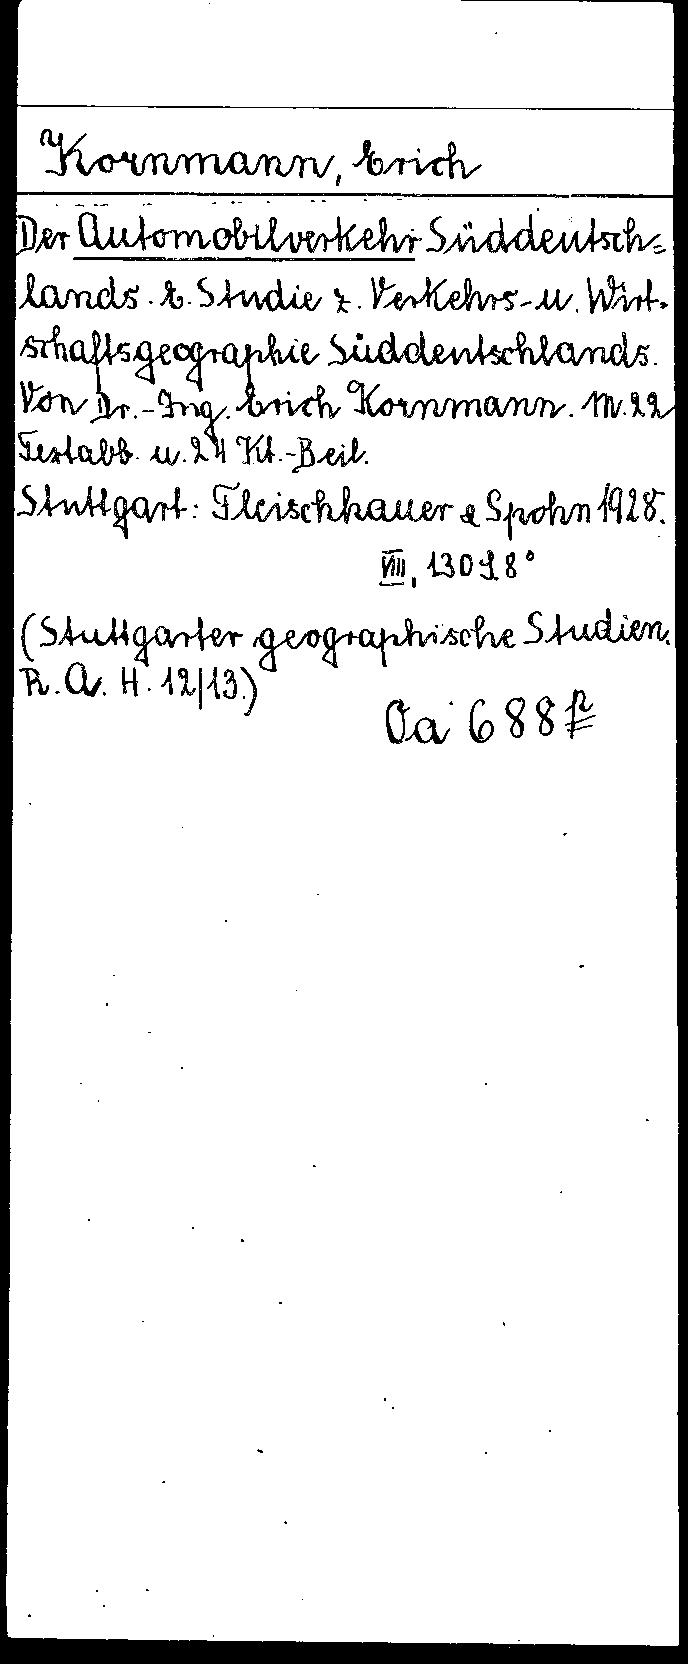 Kornmann, Erich
Der Automobilverkehr Süddeutsch=
lands. E. Studie z. Verkehrs- u. Wirt-
schaftsgeographie Süddeutschlands.
Von Dr.-Ing. Erich Kornmann. M. 22
Textabb. u. 24 Kt.-Beil.
Stuttgart: Fleischhauer & Spohn 1928.
VIII, 130 S. 8°
(Stuttgarter geographische Studien.
R. A. H. 12/13.)
Oa 688